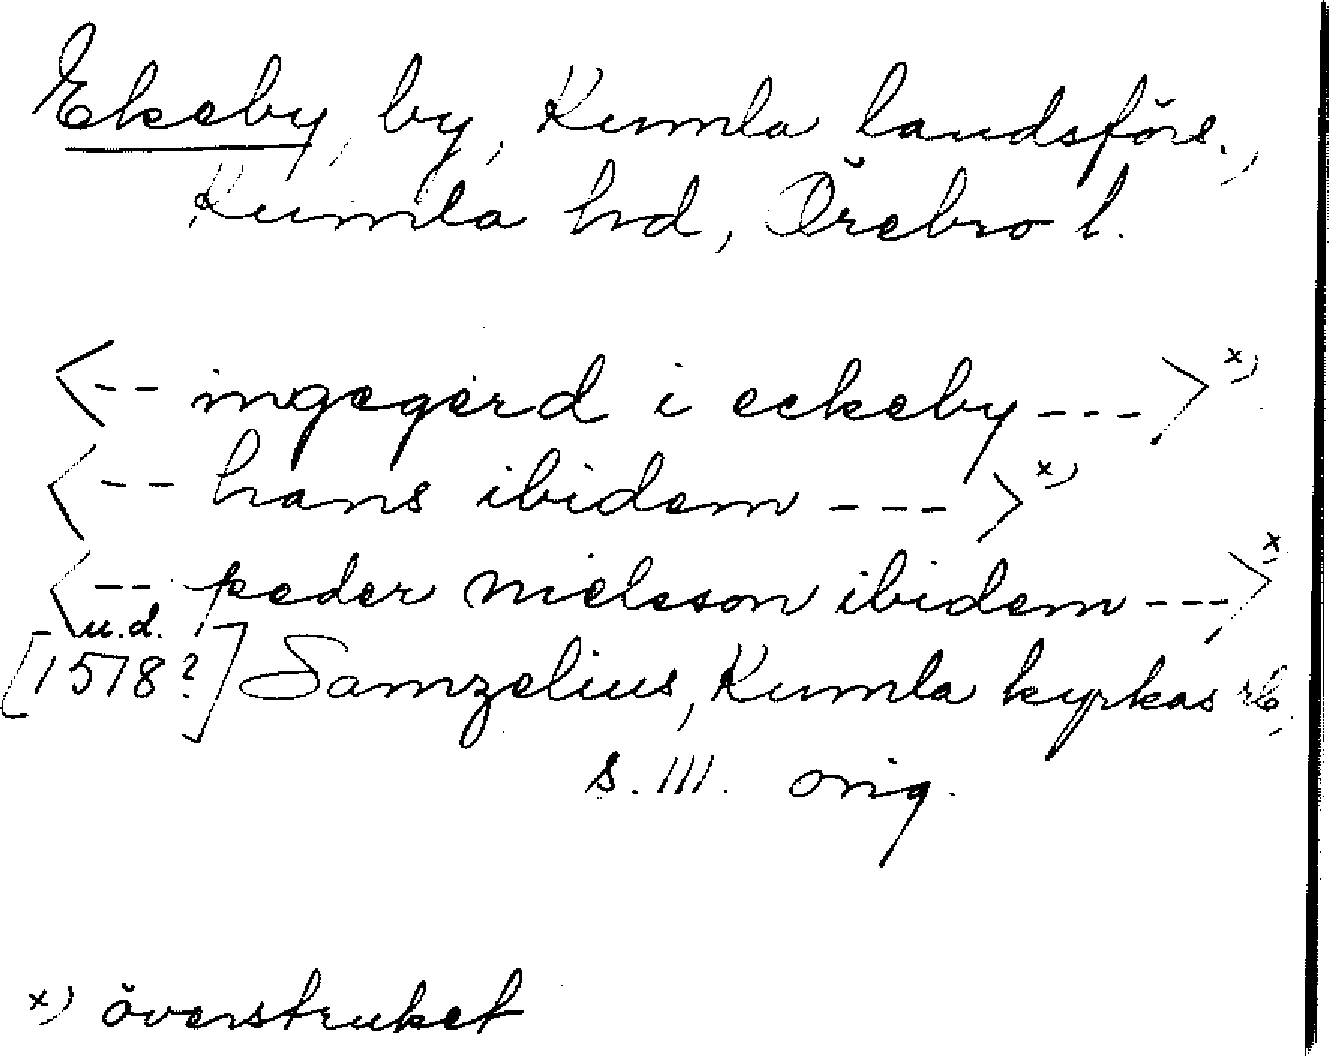 Ekeby, by, Kumla landsförs.,
Kumla hd, Örebro l.
<-- ingegerd i eckeby --->x)
<-- hans ibidem --->x)
<-- peder nielsson ibidem --->x)
u.d.
[1578?] Samzelius, Kumla kyrkas rb,
s. 111. orig.
x) överstruket